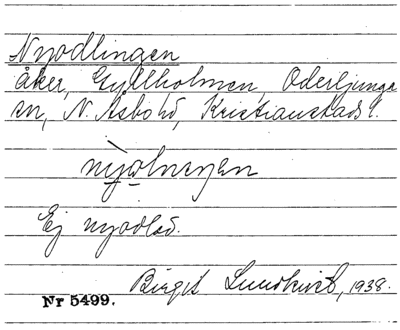 Nyodlingen
åker, Gyllholmen, Oderljunga
sn, N. Åsbo hd, Kristianstads l.
Ej nyodlad.
Birgit Lundkvist, 1938.
Nr 5499.